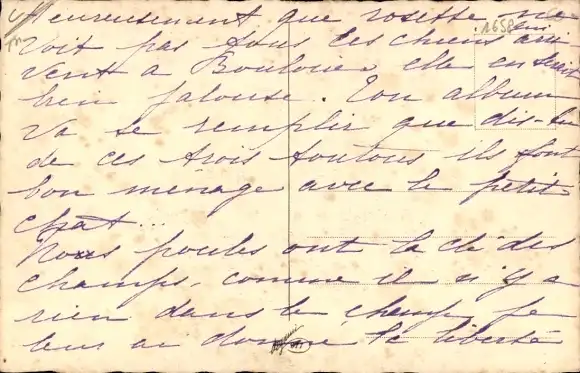 Heureusement que rosette ne
voit pas tous ces chiens qui
1658
arri
vent a elle en serait
bien jalouse. Ton album
va se remplir que dis-tu
de ces trois toutous ils font
bon ménage avec le petit
chat...
Nous poules ont la clé des
champs, comme il n'y a
rien dans le champ je
leur ai donné la liberté